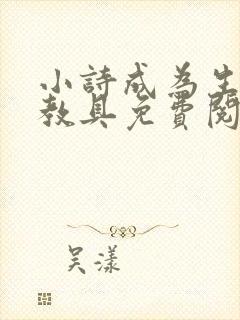 小詩成為生
教具免費閱
吴漾